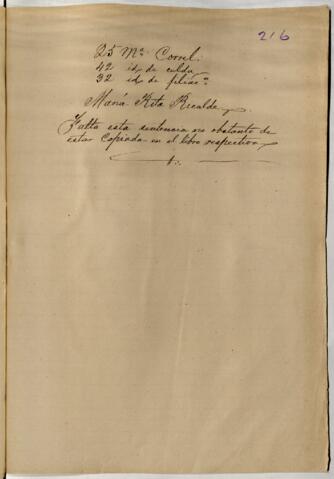 216
25 Mª Correl.
42 id de culda
32 id de filiac.ⁿ
Maná Rita Recalde,
Falta esta sentencia no obstante de
estar Copiada en el libro respectivo,